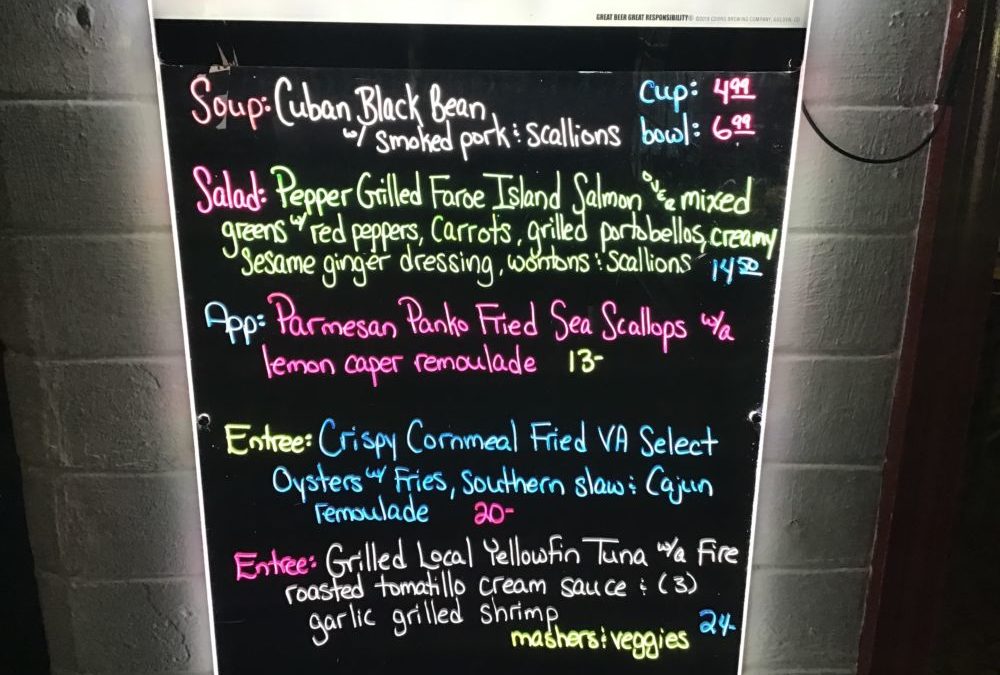 GREAT BEER GREAT RESPONSIBILITY® ©2019 COORS BREWING COMPANY, GOLDEN, CO
Soup: Cuban Black Bean Cup: 4.99
w/ smoked pork & scallions bowl: 6.99
Salad: Pepper Grilled Faroe Island Salmon over mixed
greens w/ red peppers, Carrots, grilled portobellos, creamy
sesame ginger dressing, wontons & scallions 14.50
App: Parmesan Panko Fried Sea Scallops w/a
lemon caper remoulade 13-
Entree: Crispy Cornmeal Fried VA Select
Oysters w/ Fries, Southern slaw & Cajun
remoulade 20-
Entree: Grilled Local Yellowfin Tuna w/a Fire
roasted tomatillo cream sauce & (3)
garlic grilled shrimp
mashers & veggies 24-